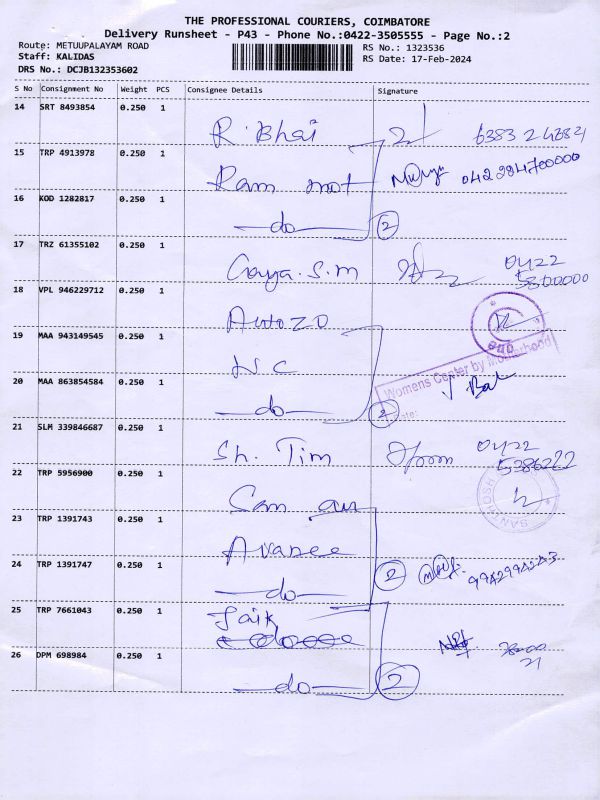 THE PROFESSIONAL COURIERS, COIMBATORE
Delivery Runsheet - P43 - Phone No.:0422-3505555 - Page No.:2
Route: METUUPALAYAM ROAD
RS No.: 1323536
Staff: KALIDAS
RS Date: 17-Feb-2024
DRS No.: DCJB132353602
S No Consignment No Weight PCS Consignee Details Signature
14 SRT 8493854 0.250 1
R. Bhai
15 TRP 4913978 0.250 1
Ram
16 KOD 1282817 0.250 1
do 2
17 TRZ 61355102 0.250 1
S.M 0422
18 VPL 946229712 0.250 1
Auto
19 MAA 943149545 0.250 1
N C
Womens Center by Motherhood
20 MAA 863854584 0.250 1
do 2
Date:
21 SLM 339846687 0.250 1
Sh. Tim 0422
22 TRP 5956900 0.250 1
SANTHOSH
23 TRP 1391743 0.250 1
Avanee
24 TRP 1391747 0.250 1
do 2
25 TRP 7661043 0.250 1
Jaik
26 DPM 698984 0.250 1
do 2